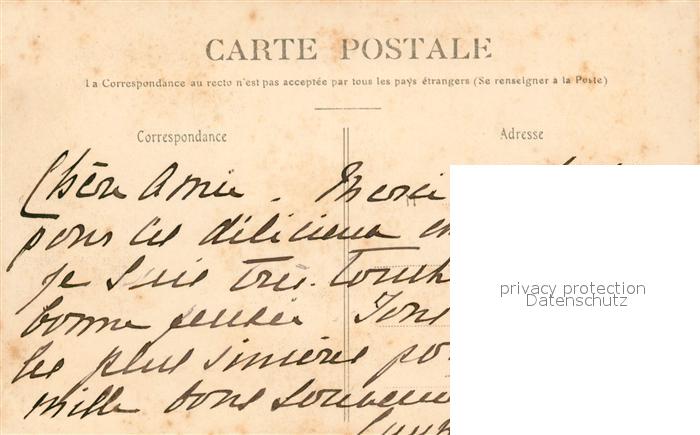 CARTE POSTALE
La Correspondance au recto n'est pas acceptée par tous les pays étrangers (Se renseigner à la Poste)
Correspondance
Adresse
Chère Amie. Merci
pour ces délicieux
je suis très touch
bonne pensée
les plus sincères po
mille bons souveni
privacy protection
Datenschutz